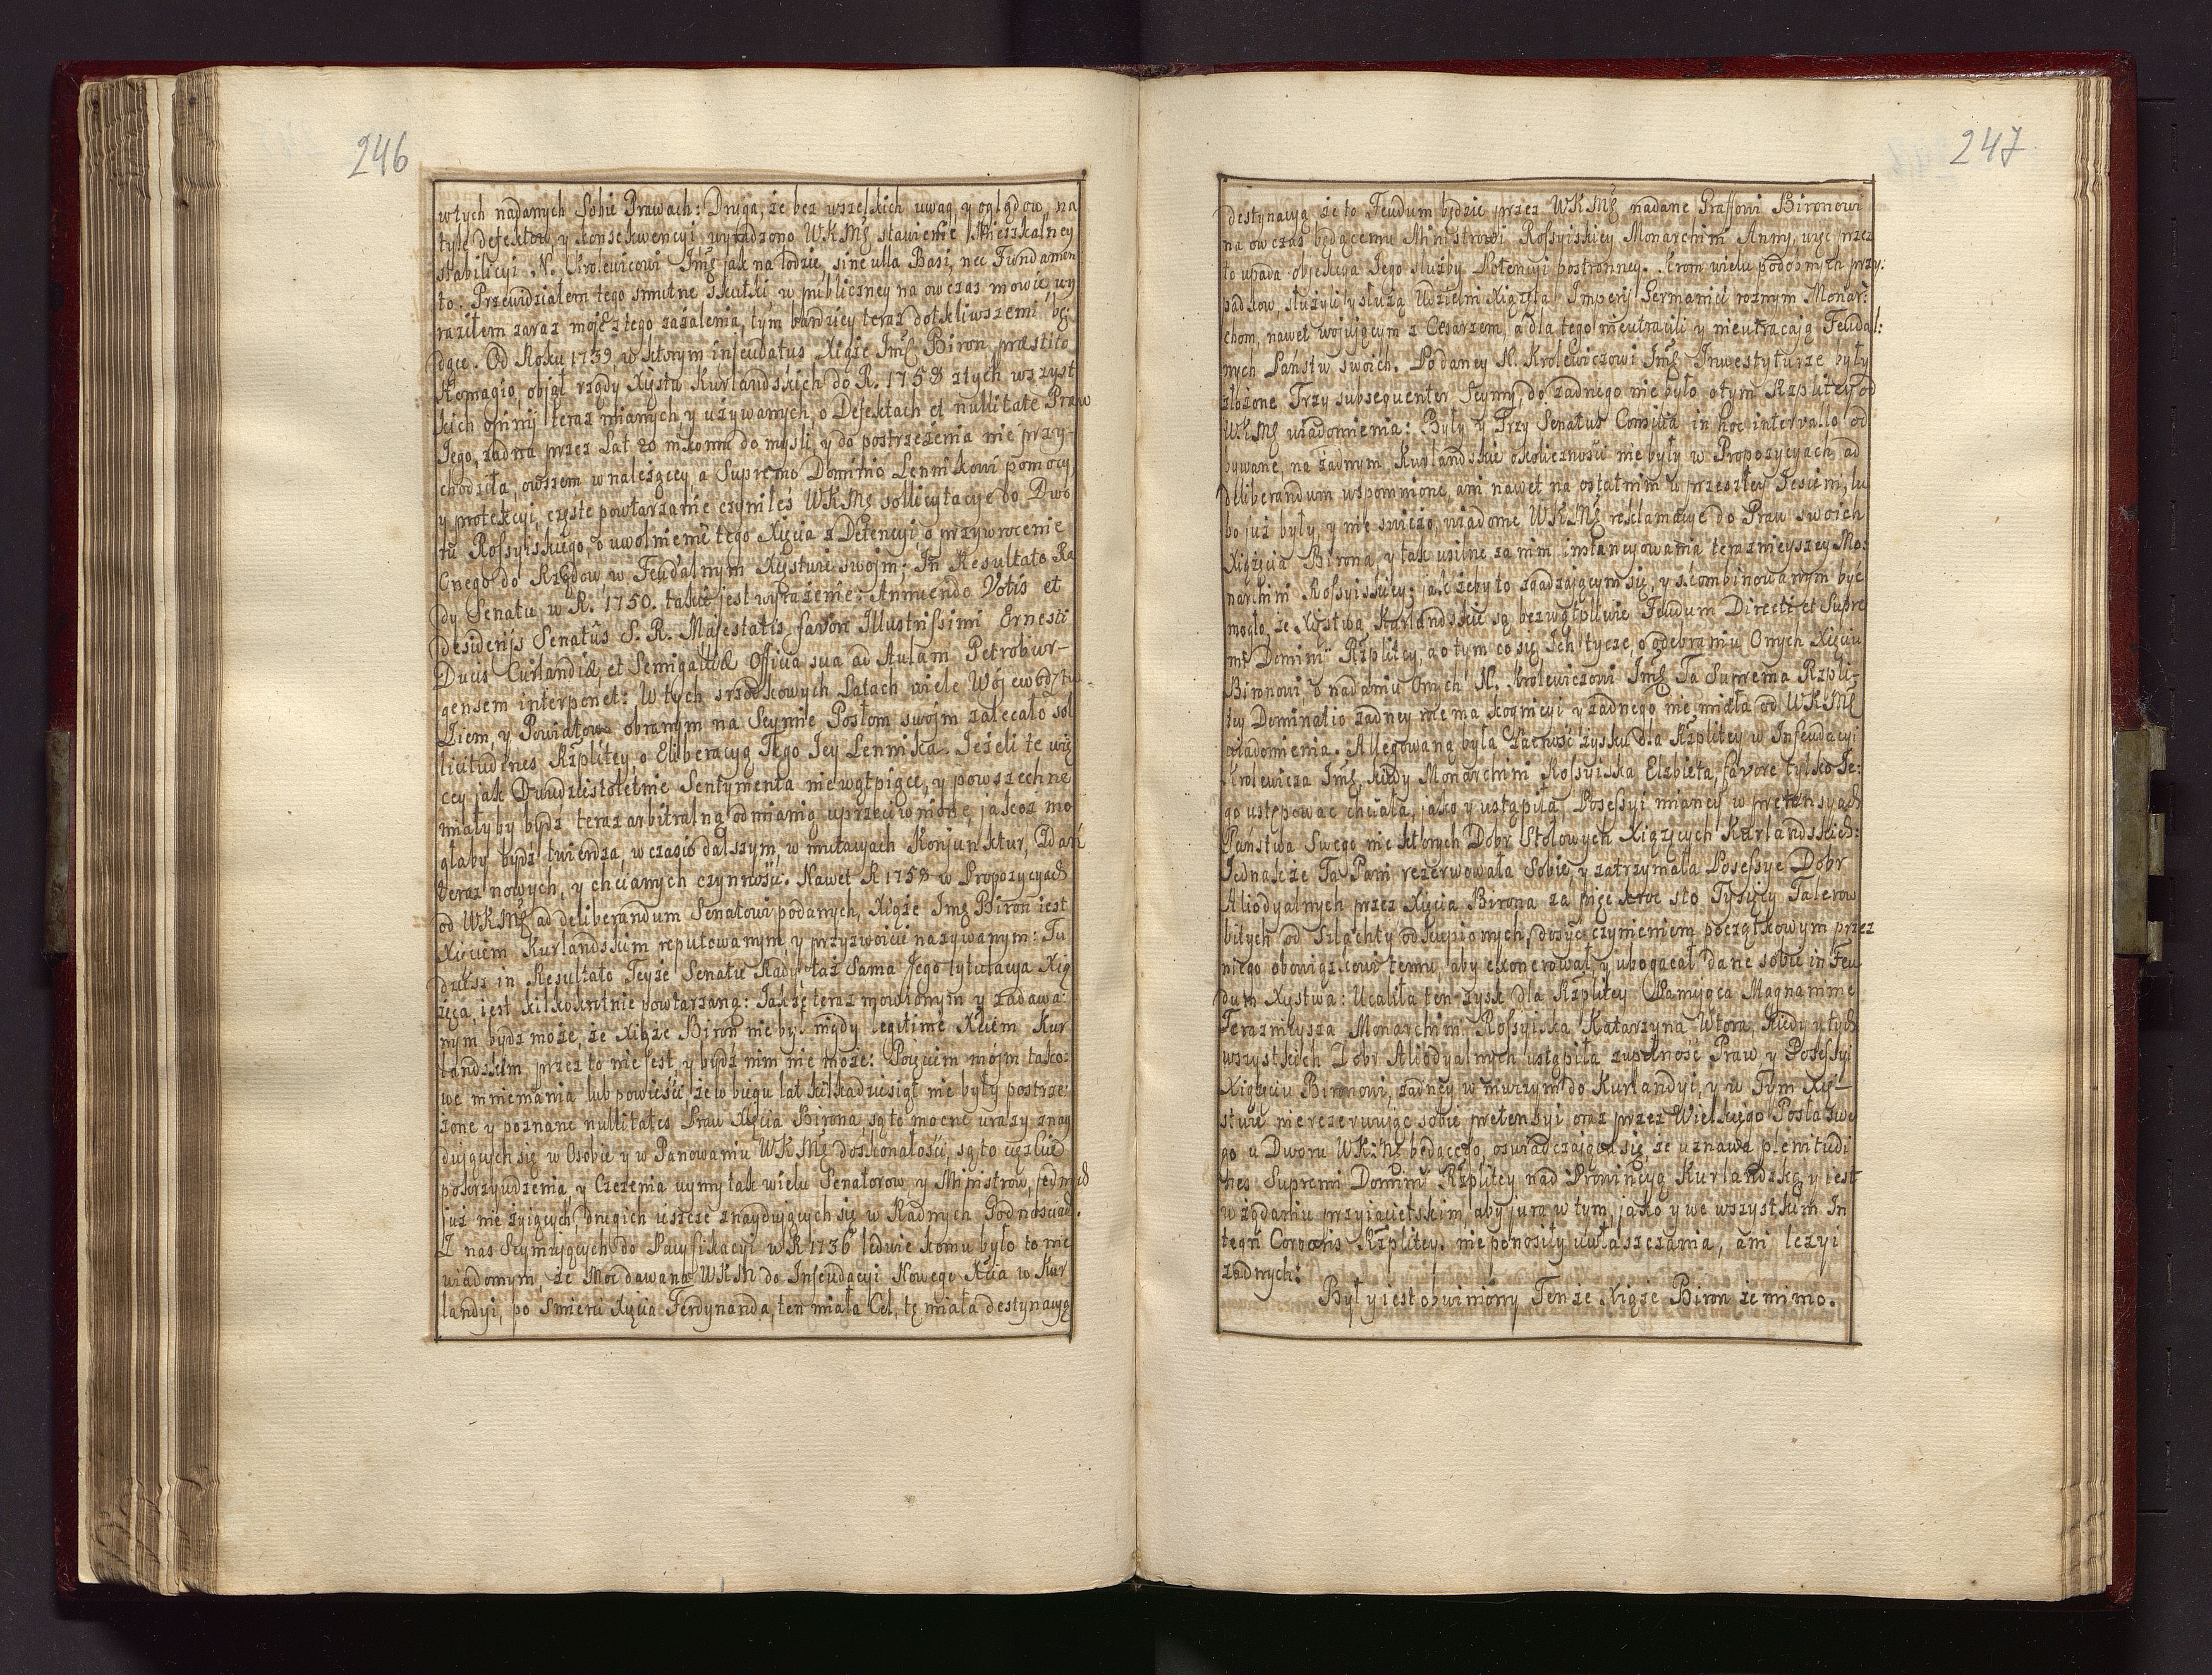 246
w tych nadanych Sobie Prawach: Druga, że bez wszelkich uwag, y oglądow, na
tyle defektow y konsekwencyi uradzono WKMś stawienie Mieszkalney
stabilicyi N. Krolewicowi Jmś jak na lodzie, sine ulla Basi, nec Fundamen
to. Przewidziałem tego smutne skutki w publiczney na ow czas mowie, wy
raziłem zaraz moje z tego zażalenia, tym bardziey teraz dotkliwszemi bę:
dące. Od Roku 1739 w ktorym infeudatus Xiąże Jmś Biron præstito
Homagio, objął rządy Xystw Kurlandskich do R. 1758 z tych wszyst
kich opinij teraz mianych, y używanych, o Defektach et nullitate Praw
Jego, żadna przez Lat 20 nikomu do myśli, y do postrzeżenia nie przy-
chodziła, owszem w należącey a Supremo Dominio Lennikowi pomocy
y protekcyi, częste powtarzanie czyniłeś WKMś sollicytacye do Dwo
ru Rossyiskiego, o uwolnienie tego Xięcia z Detencyi o przywrocenie
Onego do Rządow w Feudalnym Xystwie swojm; Jn Resultato Ra
dy Senatu w R. 1750. takie jest wyrażenie: Annuendo Votis et
Desiderijs Senatûs S. R. Majestatis, favore Illustrissimi Ernesti
Ducis Curlandiæ et Semigalliæ Officia sua ad Aulam Petrobur-
gensem interponet: W tych srzodkowych Latach wiele Wojewodztw
Ziem, y Powiatow obranym na Seymie Posłom swojm zalecało sol
licitudines Rzplitey, o Eliberacyą Tego Jey Lennika. Jeżeli te wię
cey jak Dwudziestoletnie Sentymenta niewątpiące, y powszechne
miałyby bydz teraz arbitralną odmianą uprzeciwnione, jakaż mo
głaby bydz twierdza, w czasie dalszym, w mutacyach Konjunktur, Zdań
teraz nowych, y chcianych czynności. Nawet R 1758 w Propozycyach
od WKMś ad deliberandum Senatowi podanych, Xiąże Jmś Biron iest
Xięciem Kurlandskim reputowanym, y przyzwoicie nazywanym: Tu
dzież in Resultato Teyże Senatu Rady taż Sama Jego tytulacya Xią
żęca, iest kilkokrotnie powtarzana: Jakże teraz mowionym y zadawa:
nym bydz może, że Xiąże Biron nie był nigdy legitime Xięciem Kur
landskim przez to nie jest, y bydz nim nie może: Pojęciem mojm tako:
we mniemania lub powieści, że w biegu lat kilkadziesiąt nie były postrze:
żone y poznane nullitates Praw Xięcia Birona, są to mocne urazy znay
dujących się w Osobie y w Panowaniu WKMś doskonałości, są to cięzkie
pokrzywdzenia, y Czezenia ujmy tak wielu Senatorow, y Ministrow, jednych
już nie żyiących, drugich ieszcze znaydujących się w Radnych Godnościach.
Z nas Seymujących do Pacyfikacyi w R 1736 ledwie komu było to nie
wiadomym, że Moc dawana WKM do Infeudacyi Nowego Xcia w Kur
landyi, po Smierci Xięcia Ferdynanda, ten miała Cel, tę miała destynacyą
247
destynacyą że to Feudum będzie przez WKMś nadane Graffowi Bironowi
na ow czas będącemu Ministrowi Rossyiskiey Monarchini Anny, więc przez
to upada objekcya Jego służby Potencyi postronney. Krom wielu podobnych przy:
padkow, służyli y służą Udzielni Xiążęta Imperij Germanici rożnym Monar:
chom, nawet wojującym z Cesarzem, a dla tego nieutracili y nieutracają Feudal:
nych Państw swoich. Podaney N. Krolewiczowi Jmś Inwestyturze były
złożone Trzy subsequenter Seymy, do żadnego nie było o tym Rzplitey od
WKMś uwiadomienia: Były y Trzy Senatus Consilia in hoc intervallo od
bywane, na żadnym Kurlandskie okoliczności nie były w Propozycyach, ad
deliberandum wspomnione, ani nawet na ostatnim w przeszłey Jesieni, lu
bo już były, y nie swieżo, wiadome WKMś reklamacye do Praw swoich
Xiążęcia Birona, y tak usilne za nim instancyowania terazniejszey Mo:
narchini Rossyiskiey; jak żeby to zgadzającym się, y skombinowanym być
mogło, że Xięstwa Kurlandskie są bezwątpliwie Feudum Directi et Supre
mi Dominii Rzplitey, a o tym co się Jch tycze, o odebraniu Onych Xięciu
Bironowi, o nadaniu Onych N. Krolewiczowi Jmś Ta Suprema Rzpli-
tey Dominatio żadney nie ma kognicyi y żadnego nie miała od WKMś
uwiadomienia. Allegowana była Zacność zysku dla Rzplitey w Infeudacyi
Krolewicza Jmś, kiedy Monarchini Rossyiska Elżbieta, favore tylko Je:
go ustępować chciała, jako y ustąpiła Possessyi mianey w pretensyach
Państwa Swego nie ktorych Dobr Stołowych Xiążęcych Kurlandskich:
Jednakże Ta Pani rezerwowała Sobie, y zatrzymała Possessye Dobr
Allodyalnych przez Xięcia Birona za pięć kroc sto Tysięcy Talerow
bitych od Szlachty odkupionych, dosyć czynieniem początkowym przez
niego obowiązkowi temu, aby exonerował, y ubogacał dane sobie in Feu
dum Xystwa: Ucaliła ten zysk dla Rzplitey Panująca Magnanime
Teraznieysza Monarchini Rossyiska Katarzyna Wtora, kiedy y tych
wszystkich Dobr Allodyalnych ustąpiła zupełność Praw y Possessyi
Xiążęciu Bironowi, żadney w niwczym do Kurlandyi, y w Tym Xię-
stwie nierezerwując sobie pretensyi oraz przez Wielkiego Posła swe
go u Dworu WKMś będącego, oswiadczającą się, że uznawa plenitudi
nes Supremi Dominii Rzplitey nad Prowincyą Kurlandzką, y iest
w żądaniu przyiacielskim, aby jura w tym, jako y we wszystkim In
tegri Corporis Rzplitey. nie ponosiły uwłaszczania, ani lezyi
żadnych:
Był y iest obwiniony Tenże Xiąże Biron że mimo.